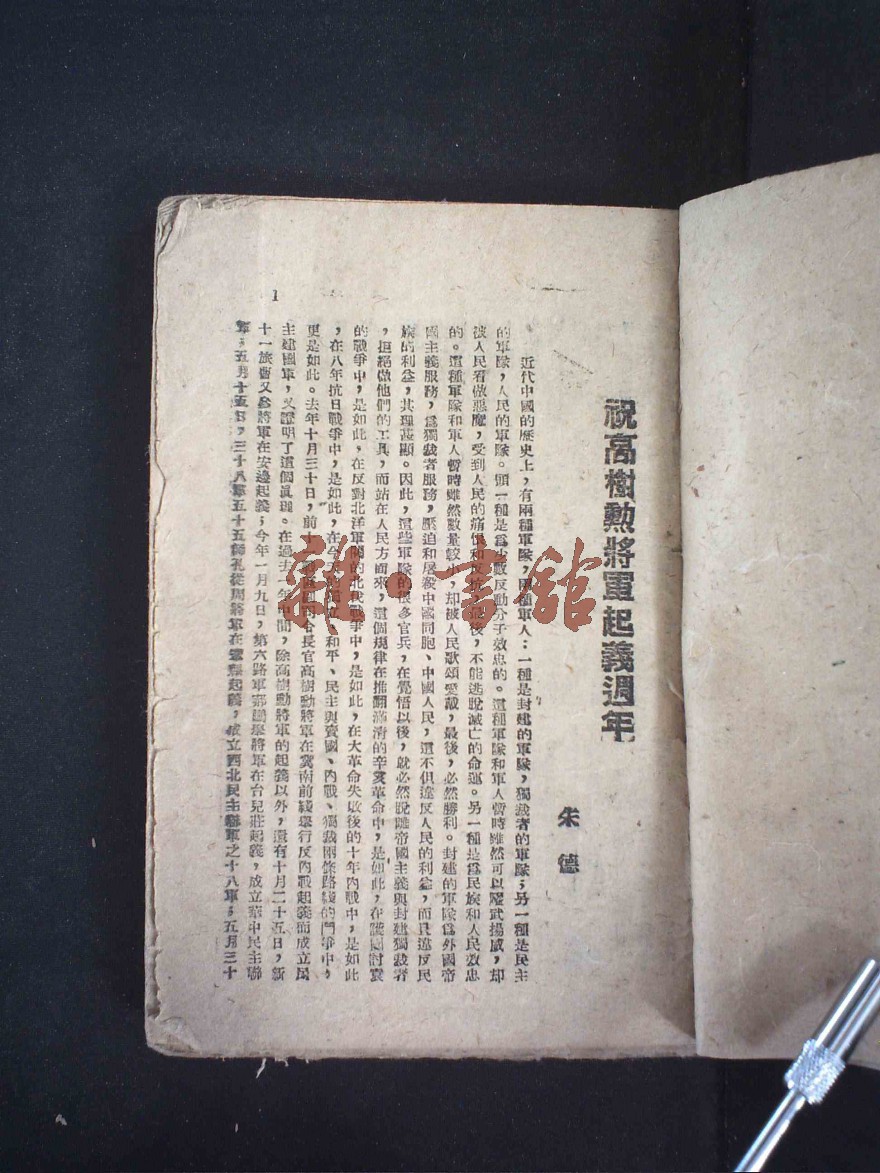 祝高樹勲將軍起義週年
朱德
近代中國的歷史上，有兩種軍隊，兩種軍人：一種是封建的軍隊，獨裁者的軍隊；另一種是民主
的軍隊，人民的軍隊。頭一種是爲少數反動分子效忠的。這種軍隊和軍人暫時雖然可以耀武揚威，却
被人民看做惡魔，受到人民的痛恨和反抗，最後，不能逃脫滅亡的命運。另一種是爲民族和人民效忠
的。這種軍隊和軍人暫時雖然數量較少，却被人民歌頌愛戴，最後，必然勝利。封建的軍隊爲外國帝
國主義服務，爲獨裁者服務，壓迫和屠殺中國同胞、中國人民，這不但違反人民的利益，而且違反民
族的利益，其理甚顯。因此，這些軍隊的很多官兵，在覺悟以後，就必然脫離帝國主義與封建獨裁者
，拒絕做他們的工具，而站在人民方面來，這個規律在推翻滿清的辛亥革命中，是如此，在護國討袁
的戰爭中，是如此，在反對北洋軍閥的北伐戰爭中，是如此，在大革命失敗後的十年內戰中，是如此
，在八年抗日戰爭中，是如此，在今天的獨立、和平、民主與賣國、內戰、獨裁兩條路綫的鬥爭中，
更是如此。去年十月三十日，前十一戰區副司令長官高樹勳將軍在冀南前綫舉行反內戰起義而成立民
主建國軍，又證明了這個眞理。在過去一年中間，除高樹勳將軍的起義以外，還有十月二十五日，新
十一旅曹又參將軍在安邊起義；今年一月九日，第六路軍郝鵬舉將軍在台兒莊起義，成立華中民主聯
軍；五月十五日，三十八軍五十五師孔從周將軍在鞏縣起義，成立西北民主聯軍之十八軍；五月三十
1
雜·書館